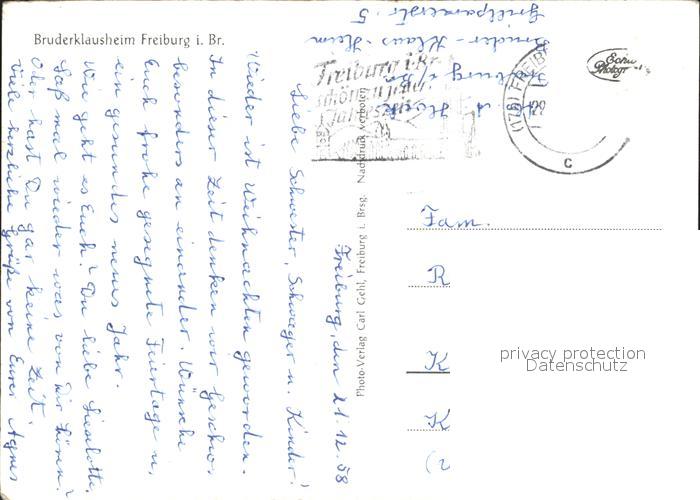 Bruderklausheim Freiburg i. Br.
Grillparzerstr. 5
Bruder-Klaus-Heim
Freiburg i/Br.
Freiburg i. Br.
schön zu jeder
Jahreszeit
(17b) FREIB
22
C
Echte
Photogr
Nachdruck verboten
Photo-Verlag Carl Gehl, Freiburg i. Brsg.
Freiburg, den 21.12.58
Liebe Schwester, Schwager u. Kinder!
Wieder ist Weihnachten geworden.
In dieser Zeit denken wir Geschw.
besonders an einander. Wünsche
Euch frohe gesegnete Feiertage u.
ein gesundes neues Jahr.
Wie geht es Euch? Du liebe Lieselotte,
laß mal wieder was von Dir hören!
Oder hast Du gar keine Zeit.
Viele herzliche Grüße von Eurer Agnes
Fam.
R
K
K
2)
privacy protection
Datenschutz